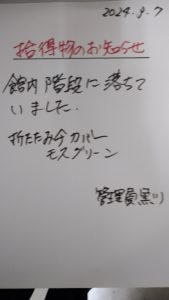 2024.9.7
拾得物のお知らせ
館内階段に落ちて
いました.
折たたみ傘カバー
モスグリーン
管理員黒川